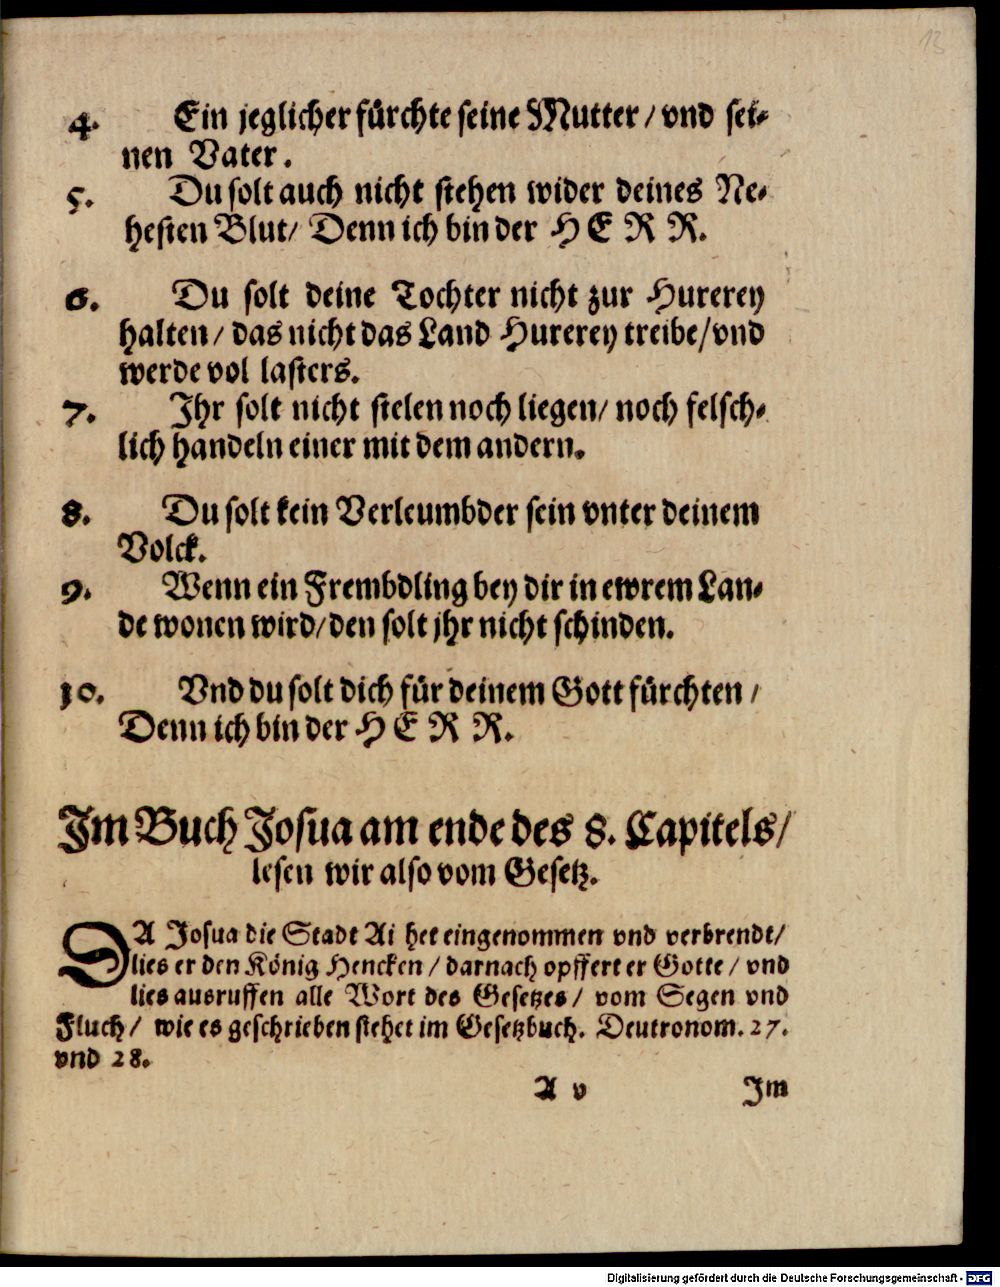 13
4. Ein jeglicher fürchte seine Mutter / vnd sei-
nen Vater.
5. Du solt auch nicht stehen wider deines Ne-
hesten Blut / Denn ich bin der HERR.
6. Du solt deine Tochter nicht zur Hurerey
halten / das nicht das Land Hurerey treibe / vnd
werde vol lasters.
7. Jhr solt nicht stelen noch liegen / noch felsch-
lich handeln einer mit dem andern.
8. Du solt kein Verleumbder sein vnter deinem
Volck.
9. Wenn ein Frembdling bey dir in ewrem Lan-
de wonen wird / den solt jhr nicht schinden.
10. Vnd du solt dich für deinem Gott fürchten /
Denn ich bin der HERR.
Jm Buch Josua am ende des 8. Capitels /
lesen wir also vom Gesetz.
DA Josua die Stadt Ai het eingenommen vnd verbrendt /
lies er den König Hencken / darnach opffert er Gotte / vnd
lies ausruffen alle Wort des Gesetzes / vom Segen vnd
Fluch / wie es geschrieben stehet im Gesetzbuch. Deutronom. 27.
vnd 28.
A v Jm
Digitalisierung gefördert durch die Deutsche Forschungsgemeinschaft - DFG